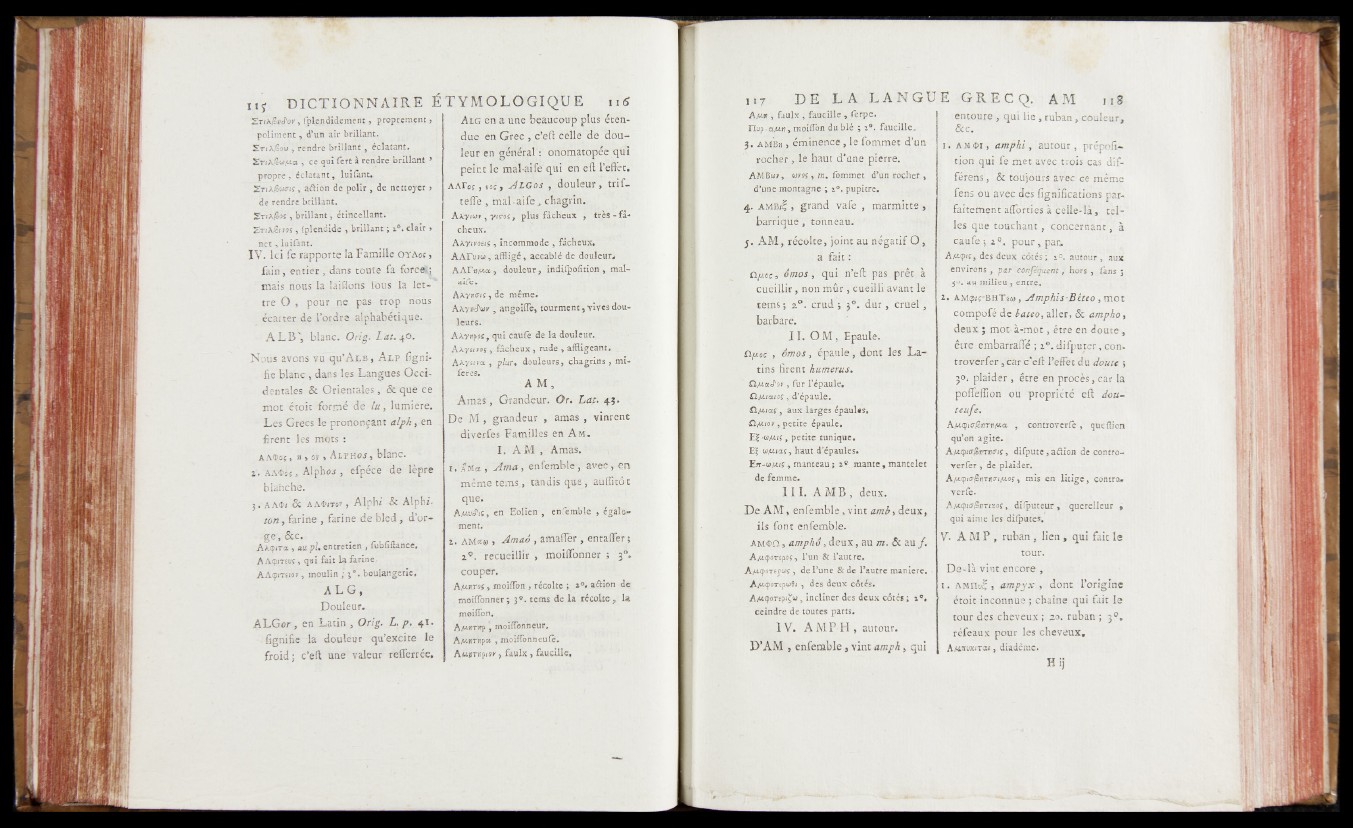 115 DICTIONNAIRE ÉTYMOLOGIQUE 116
Στιλβηδὸν, ſplendidement, proprement,
poliment, d'un air brillant.
Στιλβοω, rendre brillant, éclatant.
Στιλβωμα, ce qui ſert à rendre brillant,
propre, éclatant, luiſant.
Στιλβωσις, action de polir, de nettoyer,
de rendre brillant.
Στιλβος, brillant, étincellant.
Στιλβινος, ſplendide, brillant; 2°. clair,
net, luiſant.
IV. Ici ſe rapporte la Famille ΟΥΛος,
ſain, entier, dans toute ſa force;
mais nous la laiſſons ſous la let-
tre O, pour ne pas trop nous
écarter de l'ordre alphabétique.
ALB, blanc. Orig. Lat. 40.
Nous avons vu qu'ALB, ALP ſigni-
fie blanc, dans les Langues Occi-
dentales & Orientales, & que ce
mot étoit formé de lu, lumiere.
Les Grecs le prononçant alph, en
firent les mots:
ΑΛΦος, η, ον, ALPHOS, blanc.
2. ΑΛΦος, Alphos, eſpéce de lèpre
blanche.
3. ΑΛΦι & ΑΛΦιτον, Alphi & Alphi-
ton, farine, farine de bled, d'or-
ge, &c.
Αλφιτα, au pl. entretien, ſubſiſtance.
ΑΛΦιτος, qui fait la farine.
ΑΛφιτειον, moulin; 3°. boulangerie.
ALG,
Douleur.
ALGor, en Latin, Orig. L. p. 41.
ſignifie la douleur qu'excite le
froid; c'eſt une valeur reſſerrée.
ALG en a une beaucoup plus éten-
due en Grec, c'eſt celle de dou-
leur en général: onomatopée qui
peint le mal-aiſe qui en eſt l'effet.
ΑΛΓος, εος, ALGOS, douleur, triſ-
teſſe, mal-aiſe, chagrin.
Αλγιων, γιονος, plus fâcheux, très-fâ-
cheux.
Αλγινοεις, incommode, fâcheux.
ΑΛΓυνω, affligé, accablé de douleur.
ΑΛΓημα, douleur, indiſpoſition, mal-
aiſe.
Αλγησις, de même.
Αλγηδων, angoiſſe, tourment, vives dou-
leurs.
Αλγηρος, qui cauſe de la douleur.
Αλγεινος, fâcheux, rude, affligeant.
Αλγεινα, plur. douleurs, chagrins, mi-
ſeres.
AM,
Amas, Grandeur. Or. Lat. 43.
De M, grandeur, amas, vinrent
diverſes Familles en AM.
I. AM, Amas.
1. Αμα, Ama, enſemble, avec, en
même tems, tandis que, auſſitôt
que.
Αμυδις, en Eolien, enſemble, égale-
ment.
2. ΑΜαω, Amaô, amaſſer, entaſſer;
2°. recueillir, moiſſonner; 3°.
couper.
Αμητος, moiſſon, récolte; 2°. action de
moiſſonner; 3°. tems de la récolte, la
moiſſon.
Αμητηρ, moiſſonneur.
Αμητηρα, moiſſonneuſe.
Αμητηριον, faulx, faucille.
117 DE LA LANGUE GRECQ. AM 118
Αμη, faulx, faucille, ſerpe.
Πυρ-αμη, moiſſon du blé; 2°. faucille.
3. ΑΜΒη, éminence, le ſommet d'un
rocher, le haut d'une pierre.
ΑΜΒων, ωνος, m. ſommet d'un rocher,
d'une montagne; 2°. pupitre.
4. ΑΜΒιξ, grand vaſe, marmitte,
barrique, tonneau.
5. AM, récolte, joint au négatif O,
a fait:
Ωμος, ômos, qui n'eſt pas prêt à
cueillir, non mûr, cueilli avant le
tems; 2°. crud; 3°. dur, cruel,
barbare.
II. OM, Epaule.
Ωμος, ômos, épaule, dont les La-
tins firent humerus.
Ωμαδον, ſur l'épaule.
Ωμιαιος, d'épaule.
Ωμιας, aux larges épaules.
Ωμιον, petite épaule.
Εξ-ωμις, petite tunique.
Εξ ωμιας, haut d'épaules.
Επ-ωμις, manteau; 2° mante, mantelet
de femme.
III. AMB, deux.
De AM, enſemble, vint amb, deux,
ils ſont enſemble.
ΑΜΦΩ, amphô, deux, au m. & au f.
Αμφοτερος, l'un & l'autre.
Αμφοτερως, de l'une & de l'autre maniere.
Αμφοτερωθι, des deux côtés.
Αμφοτεριζω, incliner des deux côtés; 2°.
ceindre de toutes parts.
IV. AMPH, autour.
D'AM, enſemble, vint amph, qui
entoure, qui lie, ruban, couleur,
&c.
1. ΑΜΦΙ, amphi, autour, prépoſi-
tion qui ſe met avec trois cas dif-
férens, & toujours avec ce même
ſens ou avec des ſignifications par-
faitement aſſorties à celle-là, tel-
les que touchant, concernant, à
cauſe; 2°. pour, par.
Αμφις, des deux côtés; 2°. autour, aux
environs, par conſéquent, hors, ſans;
5°. au milieu, entre.
2. ΑΜφις-ΒΗΤεω, Amphis-Bêteo, mot
compoſé de bateo, aller, & ampho,
deux; mot-à-mot, être en doute,
être embarraſſé; 2°. diſputer, con-
troverſer, car c'eſt l'effet du doute;
3°. plaider, être en procès, car la
poſſeſſion ou propriété eſt dou-
teuſe.
Αμφισβητημα, controverſe, queſtion
qu'on agite.
Αμφισβητησις, diſpute, action de contro-
verſer, de plaider.
Αμφισβητησιμος, mis en litige, contro-
verſe.
Αμφισβητικος, diſputeur, querelleur,
qui aime les diſputes.
V. AMP, ruban, lien, qui fait le
tour.
De-là vint encore,
1. ΑΜΠυξ, ampyx, dont l'origine
étoit inconnue; chaîne qui fait le
tour des cheveux; 2o. ruban; 3°.
réſeaux pour les cheveux.
Αμπυκιται, diadême.
H ij